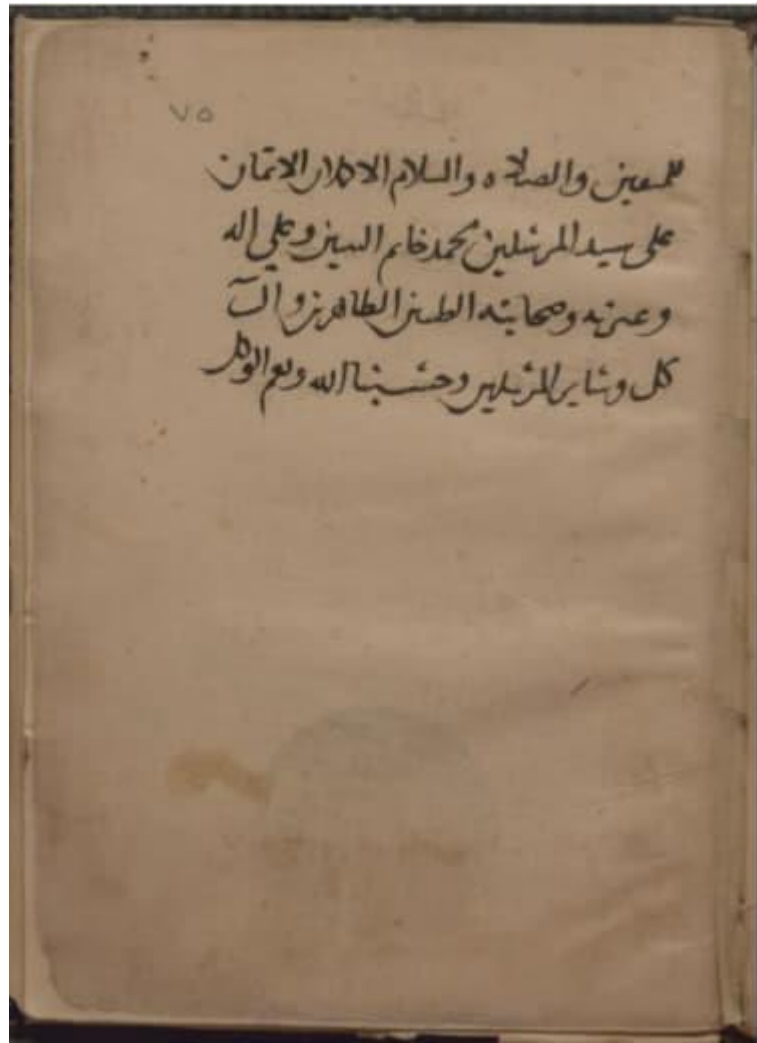 ٧٥
للمتقين والصلاه والسلام الاكملان الاتمان
على سيد المرسلين محمد خاتم النبيين وعلي اله
وعترته وصحابته الطيبين الطاهرين وال
كل وساير المرسلين وحسبنا الله ونعم الوكيل